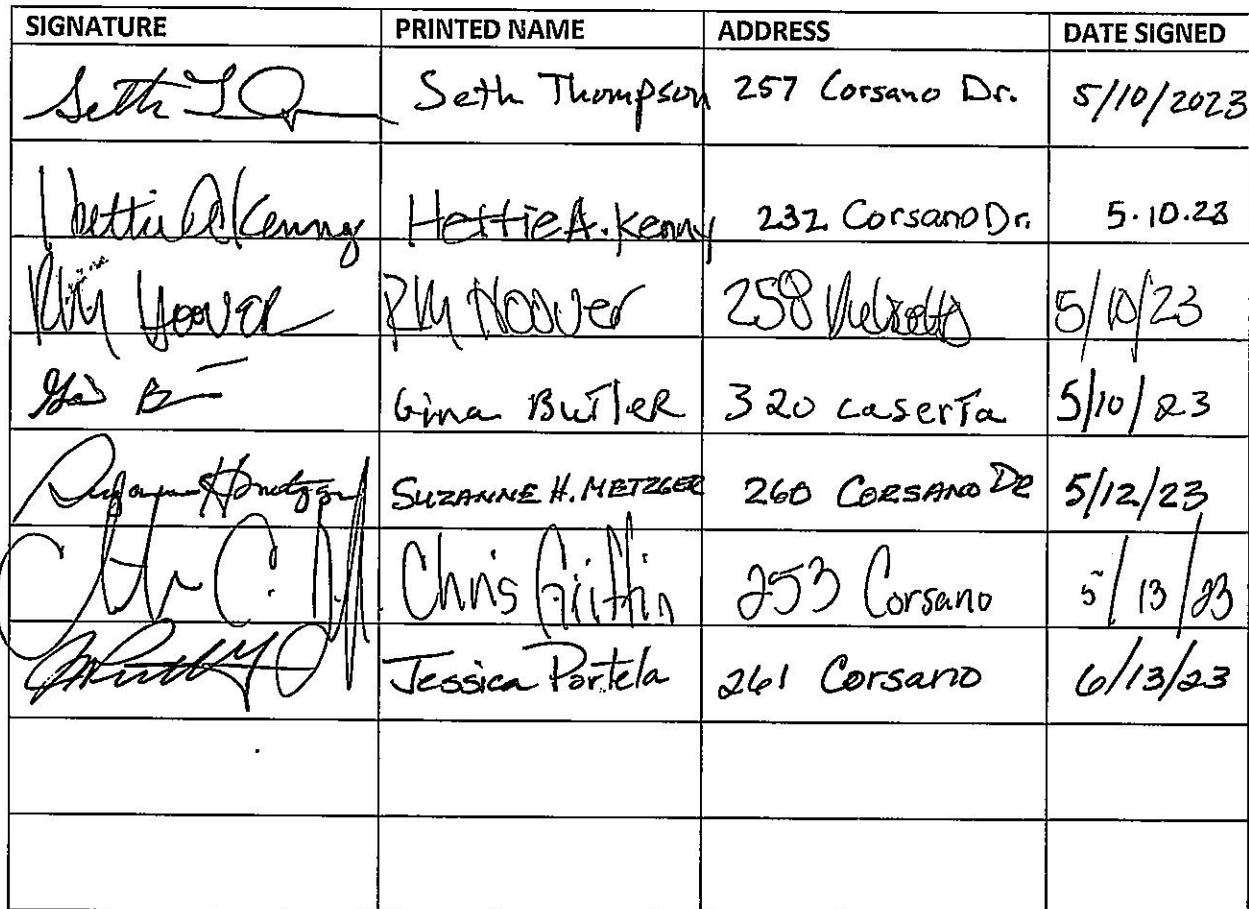 SIGNATURE PRINTED NAME ADDRESS DATE SIGNED
Seth Seth Thompson 257 Corsano Dr. 5/10/2023
Hettie A Kenny Hettie A. Kenny 232 Corsano Dr. 5.10.23
Hoover Hoover 258 5/10/23
Gina Butler 320 Caserta 5/10/23
SUZANNE H. METZGER 260 CORSANO DR 5/12/23
Chris Griffin 253 Corsano 5/13/23
Jessica Portela 261 Corsano 6/13/23